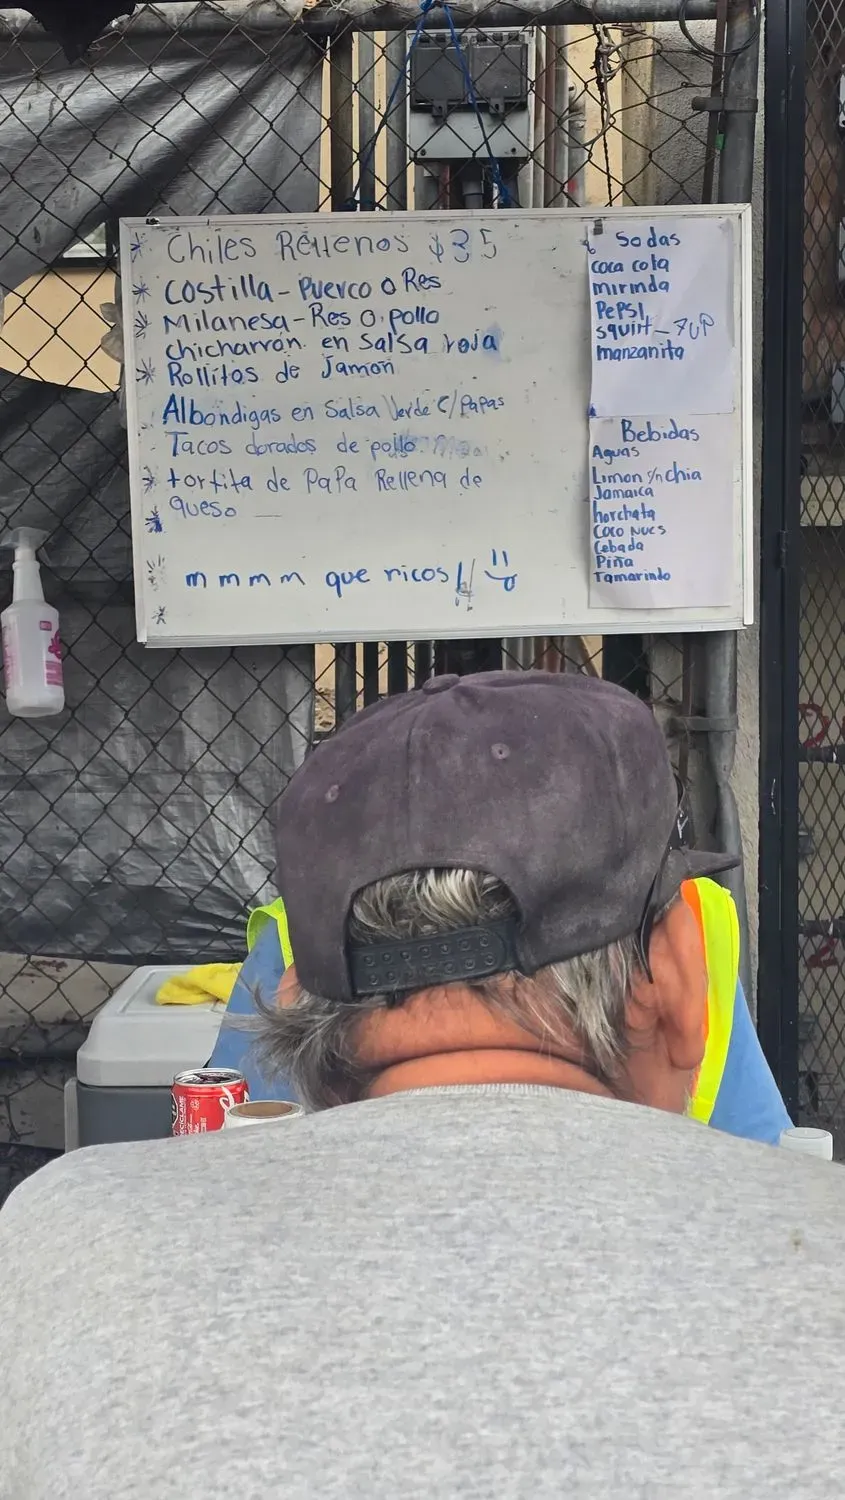 * Chiles Rellenos $35
* Costilla - Puerco o Res
* Milanesa - Res o pollo
* chicharron en Salsa roja
* Rollitos de Jamon
Albondigas en Salsa Verde c/Papas
Tacos dorados de pollo
* tortita de Papa Rellena de
* queso
* m m m m que ricos!!
Sodas
coca cola
mirinda
Pepsi
squirt - 7up
manzanita
Bebidas
Aguas
Limon s/n chia
Jamaica
horchata
Coco Nues
Cebada
Piña
Tamarindo